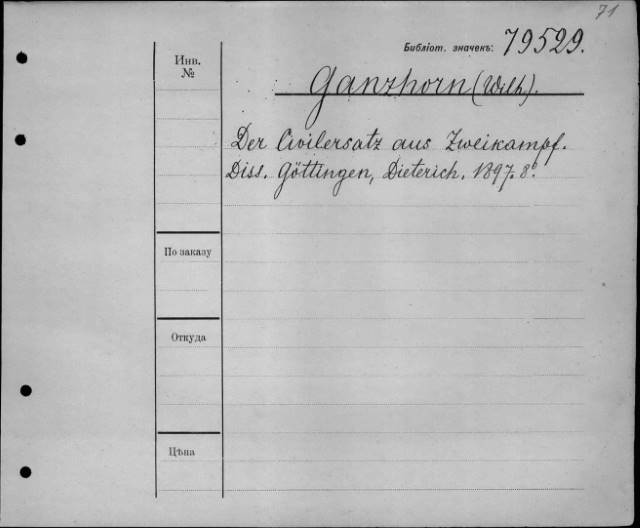 71
Библіот. значекъ: 79529.
Инв.
№
Ganzhorn (Wilh).
Der Civilersatz aus Zweikampf.
Diss. Göttingen, Dieterich. 1897. 8°
По заказу
Откуда
Цѣна